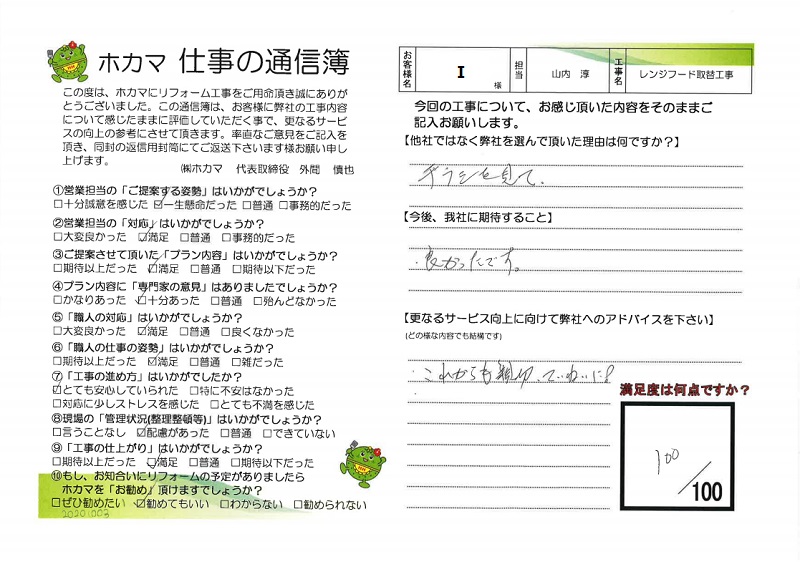 ホカマ 仕事の通信簿
この度は、ホカマにリフォーム工事をご用命頂き誠にありが
とうございました。この通信簿は、お客様に弊社の工事内容
について感じたままに評価していただく事で、更なるサービ
スの向上の参考にさせて頂きます。率直なご意見をご記入を
頂き、同封の返信用封筒にてご返送下さいます様お願い申し
上げます。
㈱ホカマ 代表取締役 外間 慎也
①営業担当の「ご提案する姿勢」はいかがでしょうか?
□十分誠意を感じた ☑一生懸命だった □普通 □事務的だった
②営業担当の「対応」はいかがでしょうか?
□大変良かった ☑満足 □普通 □事務的だった
③ご提案させて頂いた「プラン内容」はいかがでしょうか?
□期待以上だった ☑満足 □普通 □期待以下だった
④プラン内容に「専門家の意見」はありましたでしょうか?
□かなりあった ☑十分あった □普通 □殆んどなかった
⑤「職人の対応」はいかがでしょうか?
□大変良かった ☑満足 □普通 □良くなかった
⑥「職人の仕事の姿勢」はいかがでしょうか?
□期待以上だった ☑満足 □普通 □雑だった
⑦「工事の進め方」はいかがでしたか?
☑とても安心していられた □特に不安はなかった
□対応に少しストレスを感じた □とても不満を感じた
⑧現場の「管理状況(整理整頓等)」はいかがでしょうか?
□言うことなし ☑配慮があった □普通 □できていない
⑨「工事の仕上がり」はいかがでしょうか?
□期待以上だった ☑満足 □普通 □期待以下だった
⑩もし、お知合いにリフォームの予定がありましたら
ホカマを「お勧め」頂けますでしょうか?
□ぜひ勧めたい ☑勧めてもいい □わからない □勧められない
2020.1003
お客様名 I 様 担当 山内 淳 工事名 レンジフード取替工事
今回の工事について、お感じ頂いた内容をそのままご
記入お願いします。
【他社ではなく弊社を選んで頂いた理由は何ですか?】
チラシを見て、
【今後、我社に期待すること】
良かったです。
【更なるサービス向上に向けて弊社へのアドバイスを下さい】
(どの様な内容でも結構です)
これからも親切、ていねいに!
満足度は何点ですか?
100
/100